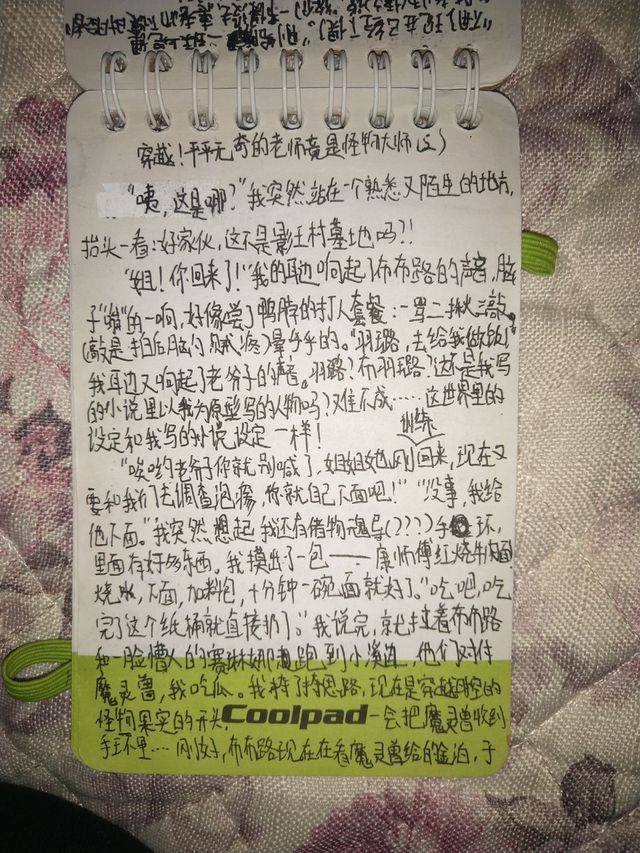 穿越!平平无奇的老师竟是怪物大师(2)
"咦,这是哪?"我突然站在一个熟悉又陌生的地方,
抬头一看:好家伙,这不是影王村墓地吗?!
"姐!你回来了!"我的耳边响起了布布路的声音,脑
子"嗡"的一响,好像尝了鸭脖的打人套餐:一骂二揪三敲。
(敲是拍后脑勺)贼疼)晕乎乎的。"羽璐,去给我做饭!"
我耳边又响起了老爷子的声音。羽璐?布羽璐?这不是我写
的小说里以我为原型写的人物吗?难不成……这世界里的
设定和我写的小说设定一样!
"唉哟老爷子你就别喊了,姐姐她刚训练回来,现在又
要和我们去调查泡疹,你就自己下面吧!""没事,我给
他下面。"我突然想起我还有储物魂导(???)手环,
里面有好多东西。我摸出了一包——康师傅红烧牛肉面
烧水,下面,加料包,十分钟一碗面就好了。"吃吧,吃
完了这个纸桶就直接扔了。"我说完,就拉着布布路
和一脸懵人的赛琳娜跑到小溪边,他们对付
魔灵兽,我吃瓜。我捋了捋思路,现在是穿越时空的
怪物果实的开头,Coolpad一会把魔灵兽收到
手环里…刚好,布布路现在在看魔灵兽给的金泊,于